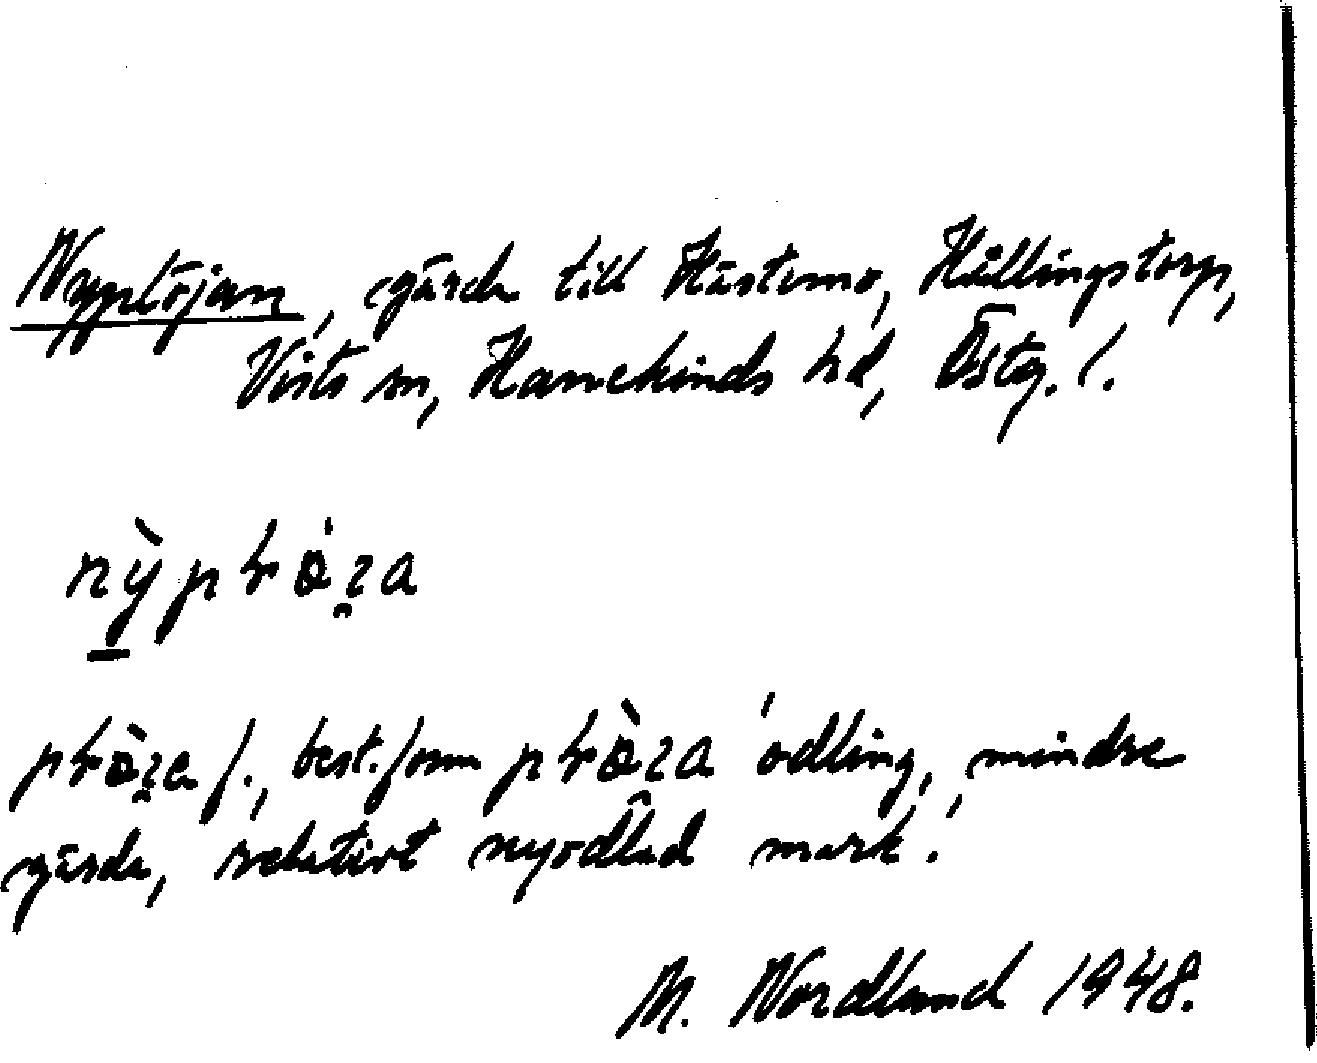 Nyplöjan, gärde till Hästemo, Hållingstorp,
Vists sn, Hanekinds hd, Östg. l.
best. form 'odling, mindre
gärde, relativt nyodlad mark'.
M. Nordland 1948.